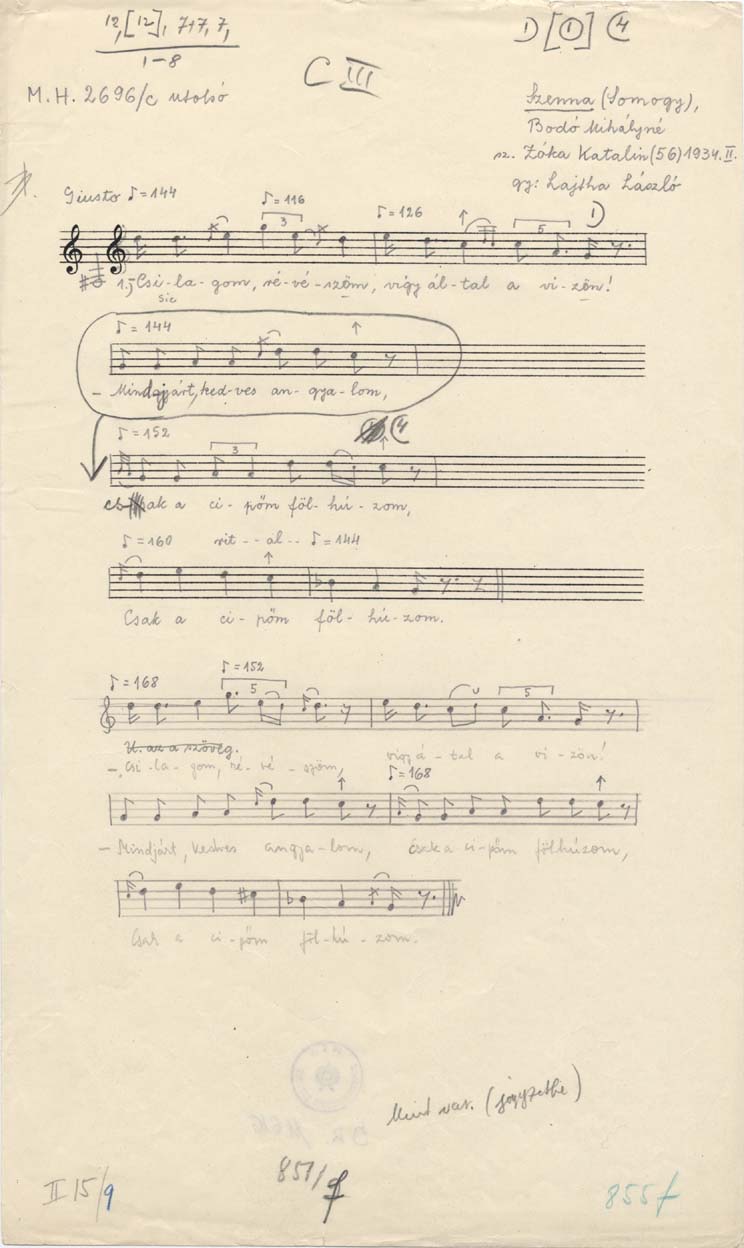 12, [12], 7+7, 7,
1-8
C III
M.H. 2696/c utolsó
Szenna (Somogy),
Bodó Mihályné
sz. Zóka Katalin (56) 1934. II.
gy: Lajtha László
Giusto ♪ = 144 ♪ = 116 ♪ = 126
3 5
1.) Csi-la-gom, ré-vé-szöm, vigy ál-tal a vi-zën!
sic
♪ = 144
– Mindgyjárt, ked-ves an-gya-lom,
♪ = 152
3
csak a ci-pőm föl-hú-zom,
♪ = 160 rit - - al - - ♪ = 144
Csak a ci-pőm föl-hú-zom.
♪ = 168 ♪ = 152
5 5
U. az a szöveg.
– Csi-la-gom, ré-vé-szöm, vigyá-tal a vi-zön!
♪ = 168
– Mindjárt, kedves angya-lom, csak a ci-pőm fölhúzom,
Csak a ci-pőm föl-hú-zom.
Mint var. (jegyzetbe)
II 15/9
851/f
855f